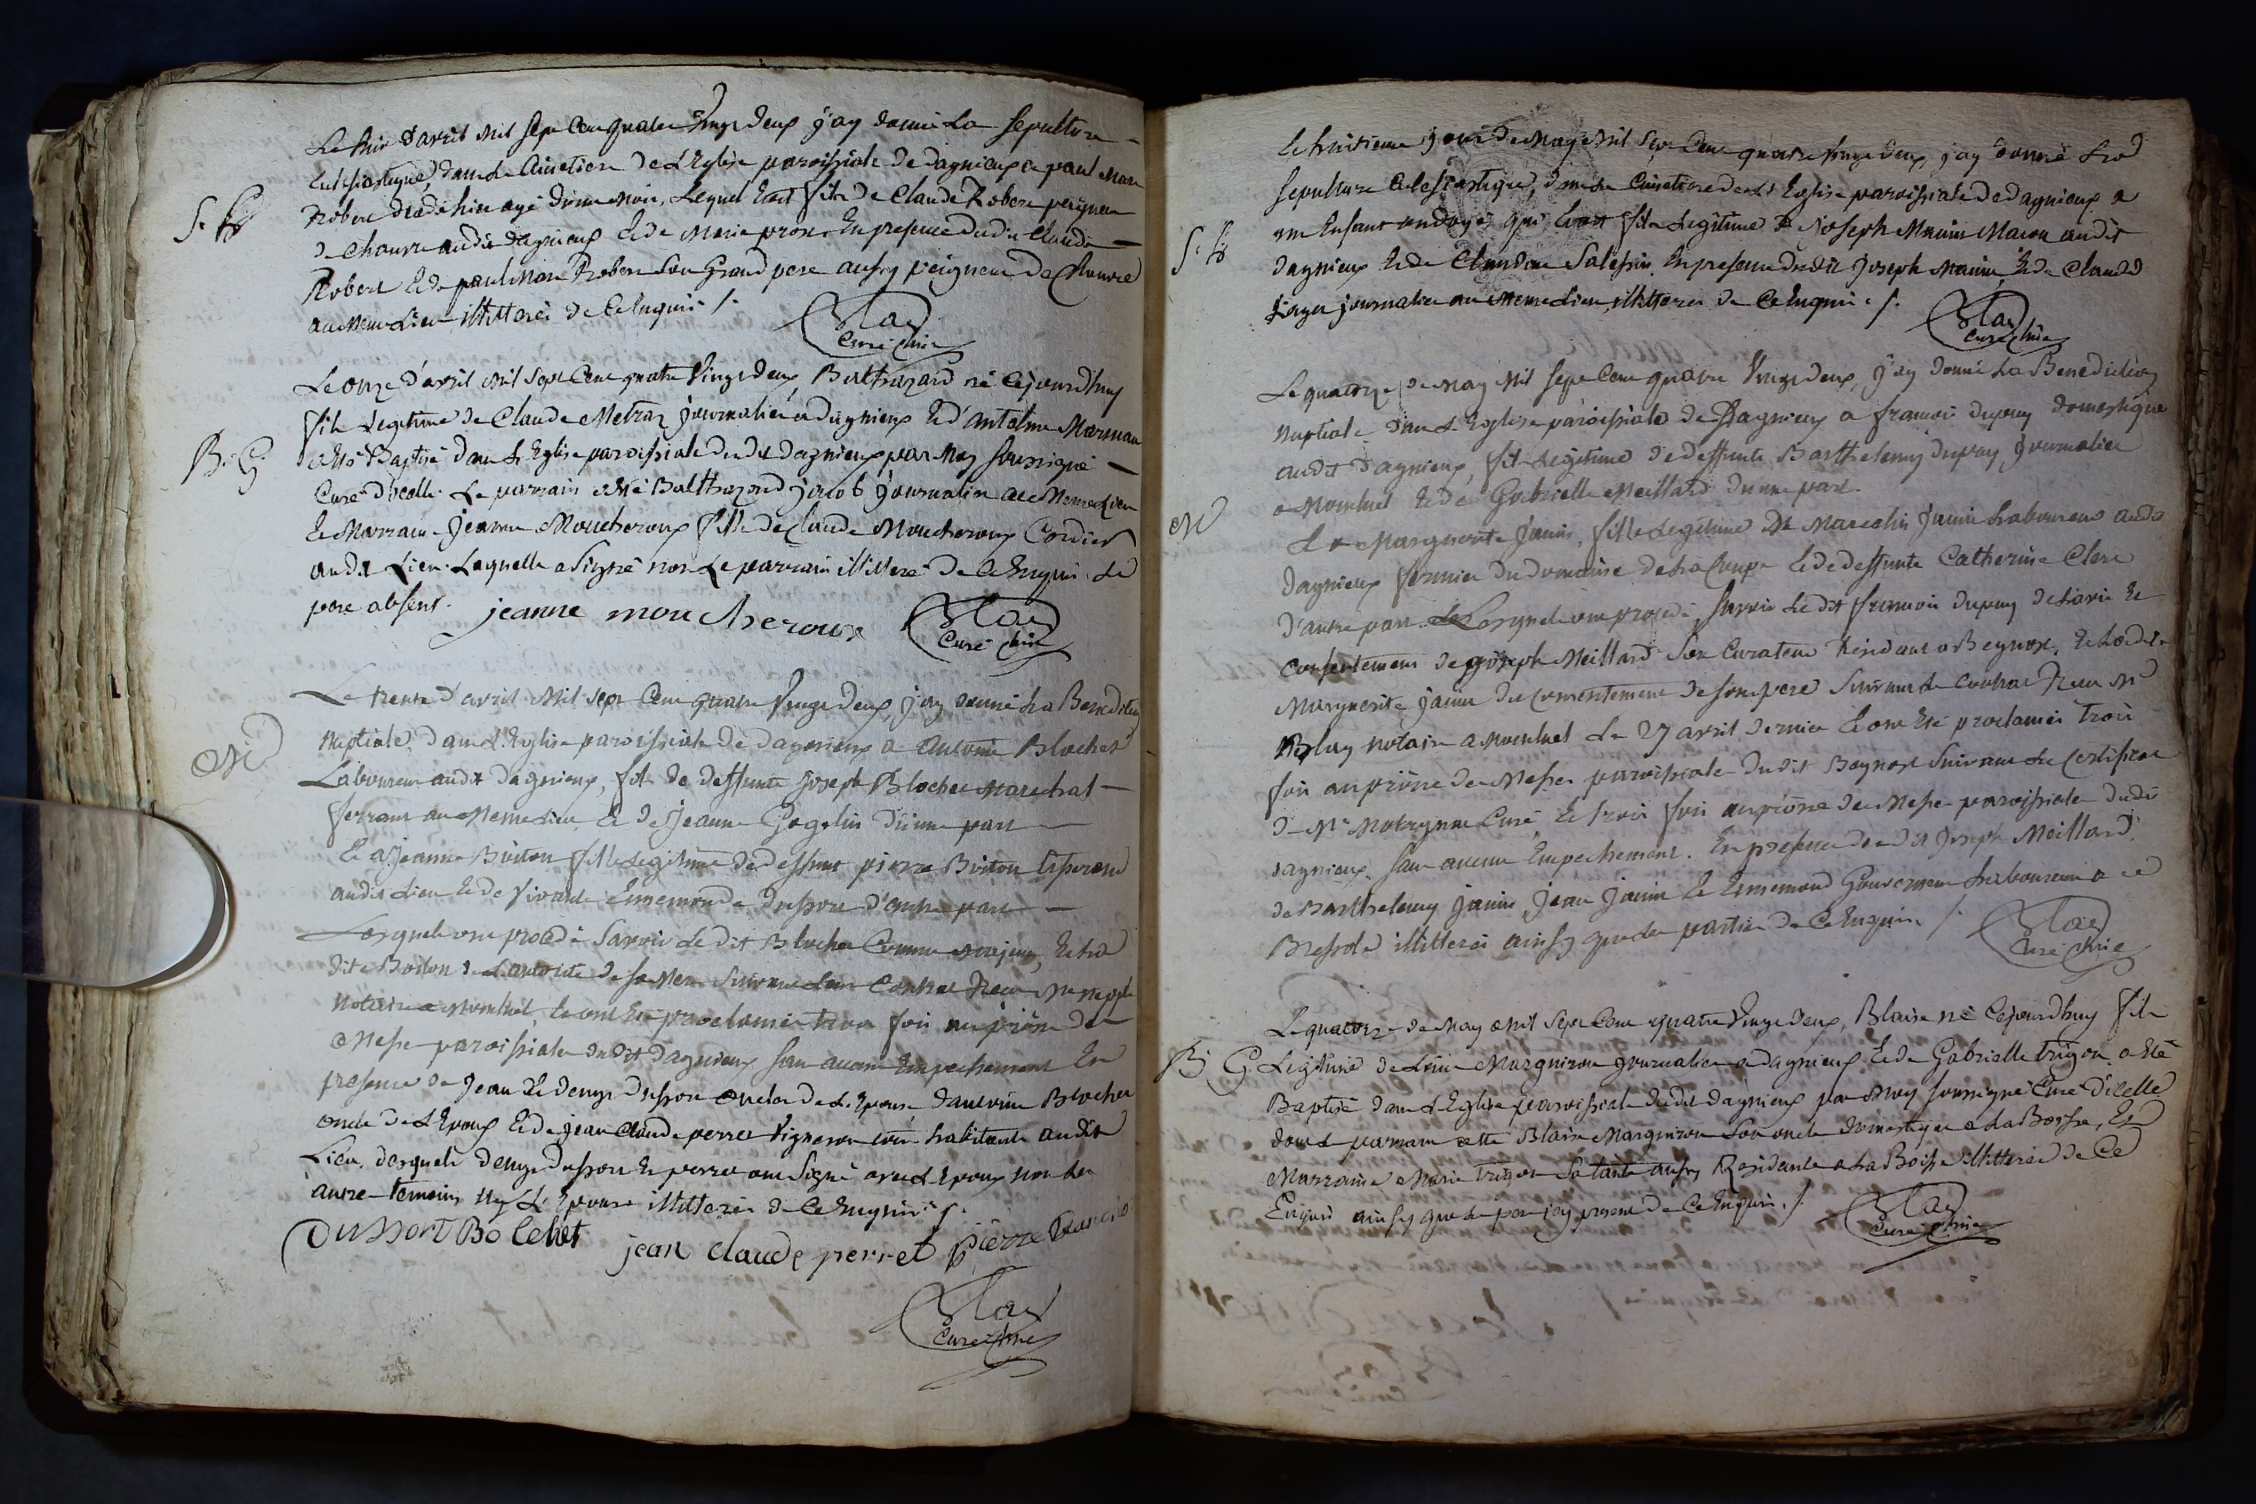 Le huit d'avril mil sept Cent quatre Vingt deux j'ay donné La Sepulture
Eclesiastique, dans Le Cimetiere de L'Eglise paroissiale de dagnieux a paul Marc
Robert décédé hier agé d'un mois, Lequel Etoit fils de Claude Robert peigneur
S. G
de Chanvre audit dagnieux Et de Marie prost En presence dudit Claude
Robert Et de paul Marc Robert Son Grand pere aussy peigneur de Chanvre
au Meme Lieu illitterés de Ce Enquis /.
Blay
Curé
Le onze d'avril mil Sept Cent quatre Vingt deux, Balthazard né Cejourdhuy
fils Legitime de Claude Metraz journalier a dagnieux Et d'antelme
a Eté Baptisé dans L'Eglise paroissiale du dit dagnieux par Moy soussigné
B. G
Curé d'icelle. Le parrain a Eté Balthazard jacob journalier au Meme Lieu
Et Marraine Jeanne Moucheroux fille de Claude Moucheroux Cordier
audit Lieu. Laquelle a Signé non Le parrain illitteré de Ce Enquis Le
pere absent.
jeanne mouCheroux
Blay
Curé
Le trente d'avril Mil Sept Cent quatre Vingt deux, j'ay donné La Benediction
Nuptiale, dans L'Eglise paroissiale de dagnieux a antoine Blochet
M
Laboureur audit dagnieux, fils de deffunts joseph Blochet Marechal
ferrant au Meme Lieu Et de Jeanne Gogelin d'une part
Et a Jeanne Buiton fille Legitime de deffunt pierre Buiton tisserand
audit Lieu Et de Vivante Ennemonde dussort d'autre part
Lesquels ont procédé Savoir Le dit Blochet Comme Majeur, Et La
dite Boiton de L'autorité de sa Mere Suivant Leur Contrat Recu Me
Notaire a Montluel, Et ont Eté proclamés trois fois au prône de
Messe paroissiale dudit dagnieux Sans aucun Empechement En
presence de Jean Et denys dussort oncles de L'Epouse d'antoine Blochet
oncle de L'Epoux Et de jean Claude perret Vigneron tous habitants audit
Lieu. desquels denys dussort Et perret ont Signé avec L'Epoux non Les
autres temoins Ny L'Epouse illitterés de Ce Enquis /.
Dussort Bo Lchet jean claude perret pierre
Blay
Curé
Le huitieme jour de May Mil Sept Cent quatre Vingt deux, j'ay donné La
Sepulture Eclesiastique, dans Le Cimetiere de L'Eglise paroissiale de dagnieux a
un Enfant ondoyé, qui Etoit fils Legitime de Joseph Manin Macon audit
S. G
dagnieux Et de Claudine Salessin. En presence dudit joseph Manin Et de Claude
journalier au Meme Lieu illitterés de Ce Enquis /.
Blay
Curé
Le quatorze de May Mil Sept Cent quatre Vingt deux, j'ay donné La Benediction
Nuptiale dans L'Eglise paroissiale de Dagnieux a francois dupuy domestique
audit dagnieux, fils Legitime de deffunts Barthelemy dupuy, journalier
a Montluel Et de Gabrielle Meillard d'une part
M
Et a Marguerite Janin, fille Legitime de Marcelin Janin Laboureur audit
dagnieux fermier du domaine de La Et de deffunte Catherine Clerc
d'autre part. Lesquels ont procédé, Savoir Le dit francois dupuy de L'avis Et
Consentement de joseph Meillard Son Curateur Residant a Beynost, Et La dite
Marguerite janin du Consentement de son pere Suivant Le Contrat Recu Me
Blay Notaire a Montluel Le 27 avril dernier Et ont Eté proclamés trois
fois au prône de Messes paroissiale dudit Beynost Suivant Le Certificat
de Mr Curé, Et trois fois au prône de Messe paroissiale dudit
dagnieux Sans aucun Empechement. En presence dudit joseph Meillard
de Barthelemy janin, Jean Janin Et Ennemond Gouverneur Laboureur a
Bressolle illitterés ainsy que Les parties de Ce Enquis /.
Blay
Curé
Le quatorze de May Mil Sept Cent quatre Vingt deux, Blaise né Cejourdhuy fils
B. G
Legitime de Marguiron journalier a dagnieux Et de Gabrielle trigon a Eté
Baptisé dans L'Eglise paroissiale dudit dagnieux par Moy soussigné Curé d'icelle
dont Le parrain a Eté Blaise Marguiron Son oncle domestique a La Boisse, Et
Marraine Marie trigon Sa tante aussy Residante a La Boisse illitterés de Ce
Enquis ainsy que Le pere icy present de Ce Enquis. /.
Blay
Curé